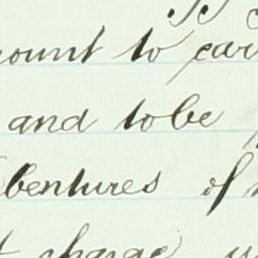 ount to car
and to be
bentures of
t charge